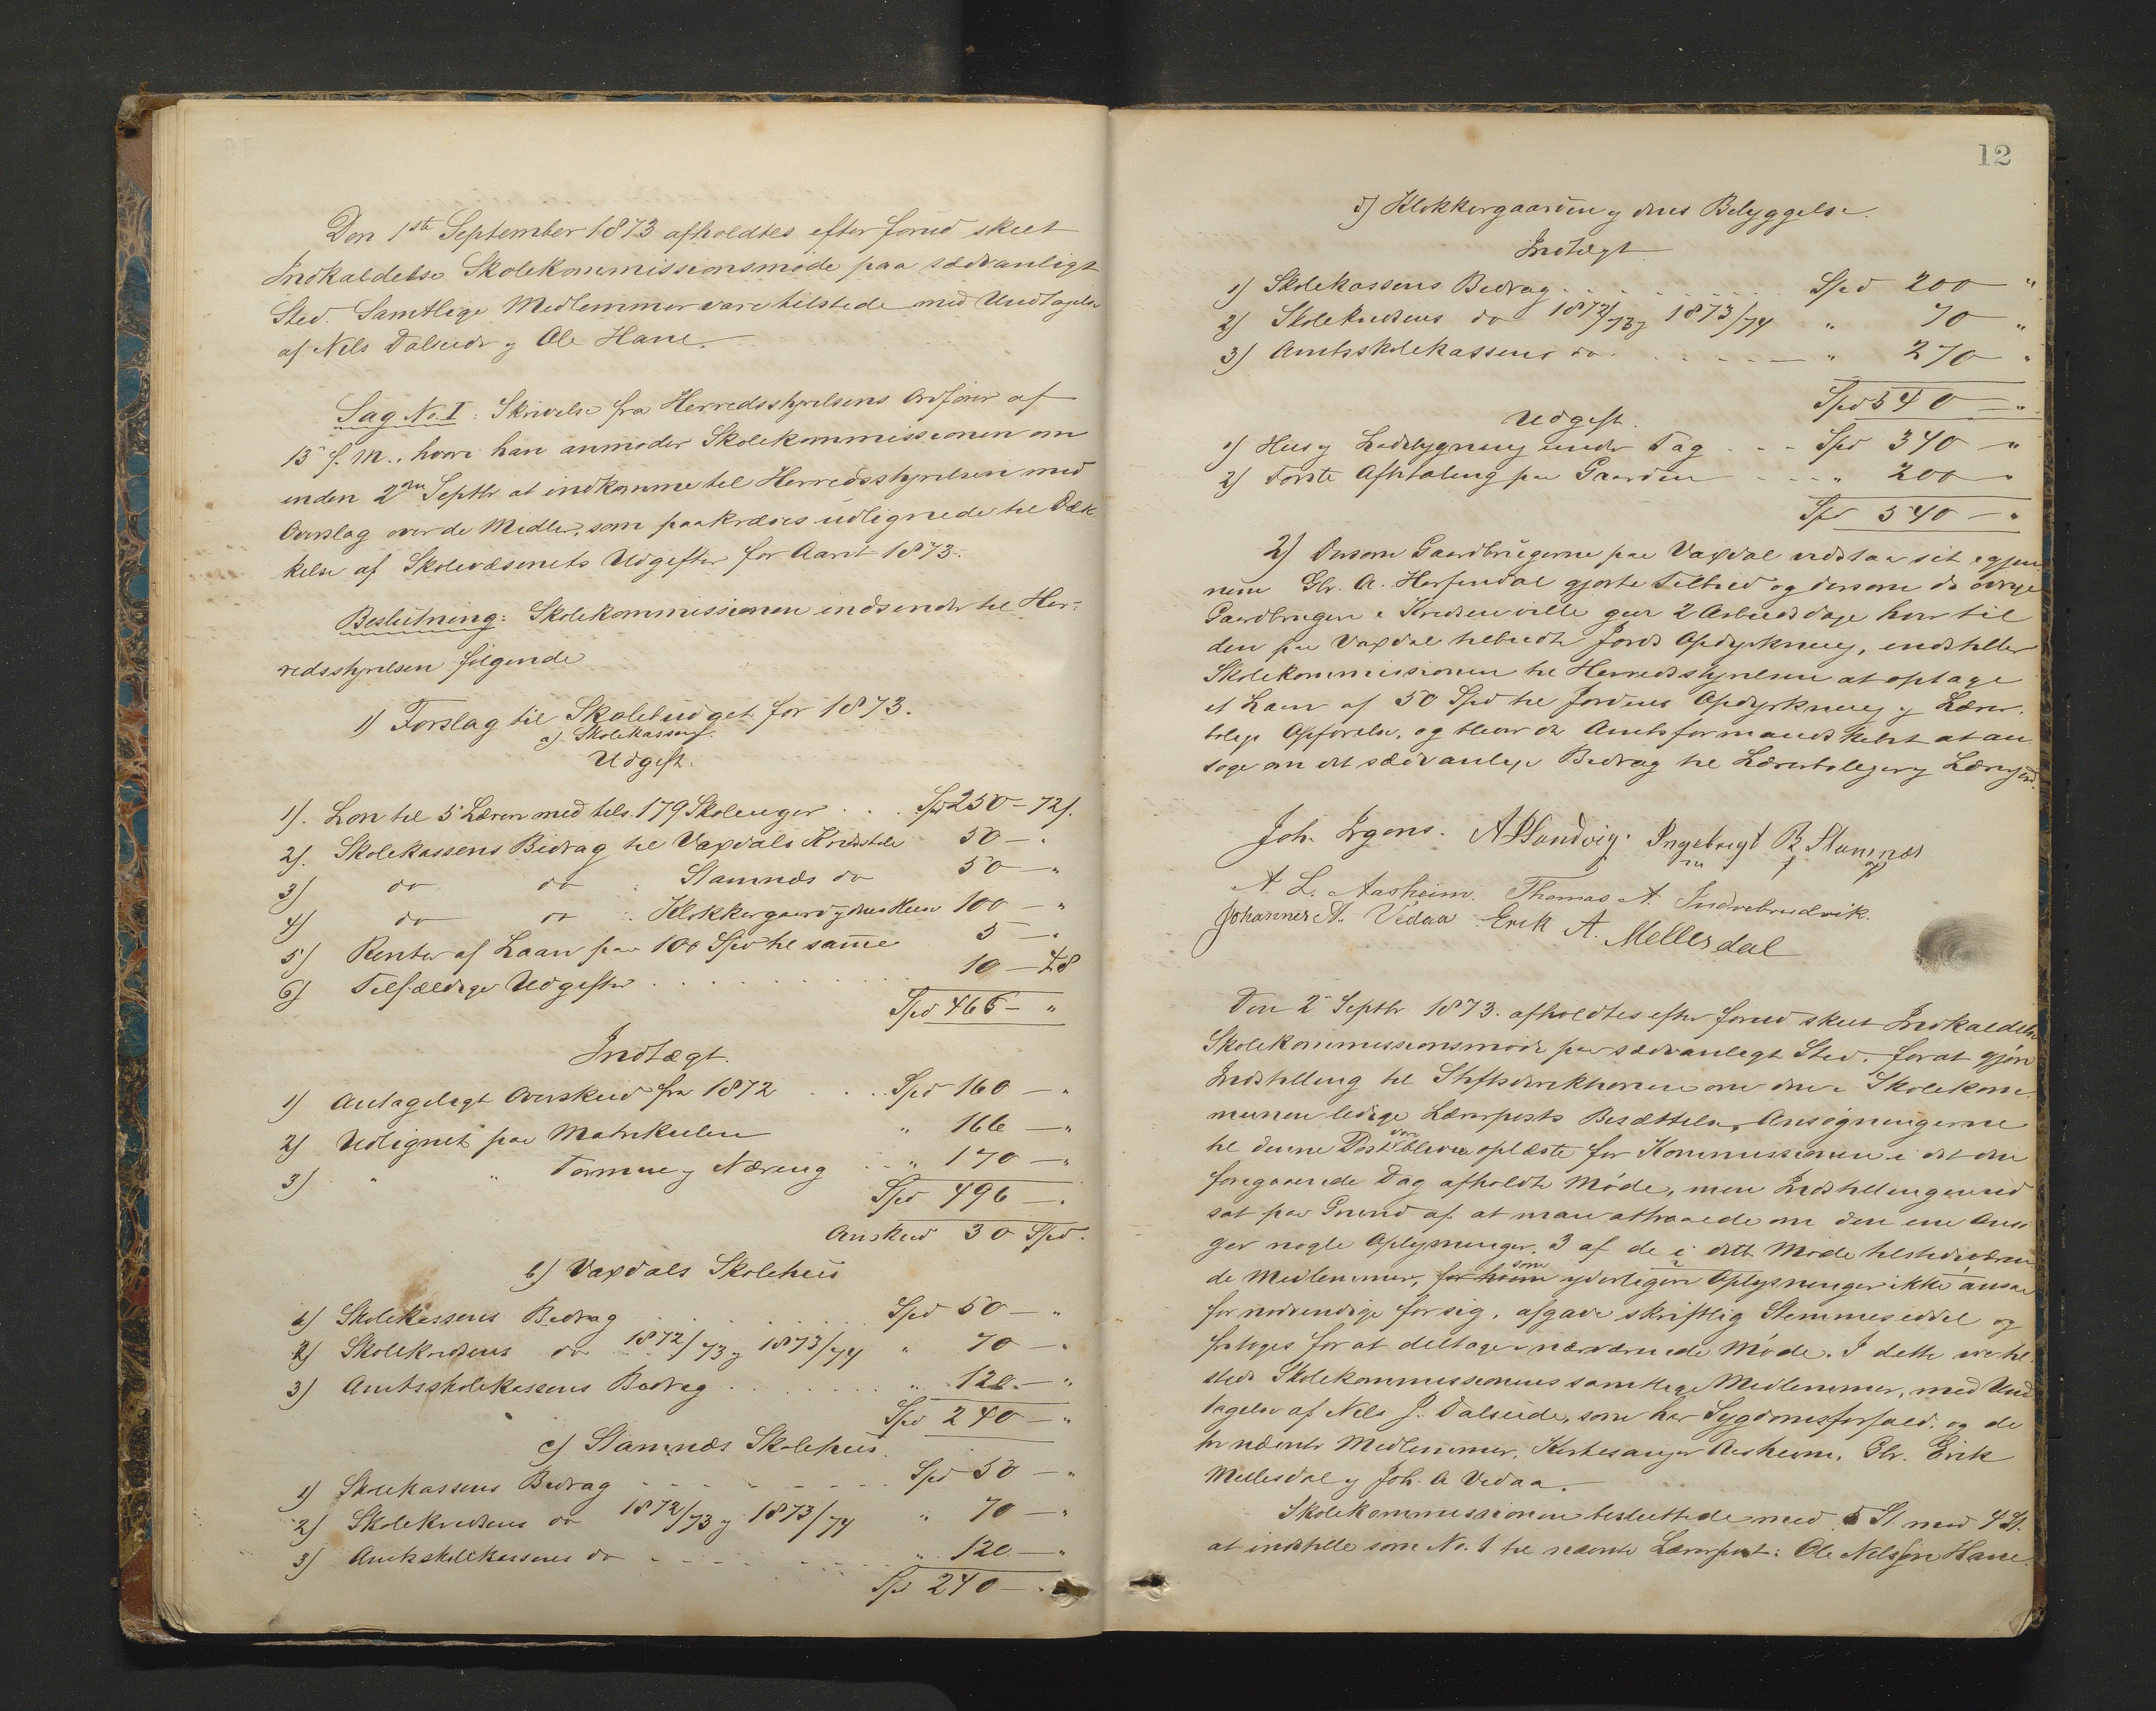 Den 1ste September 1873 afholdtes efter forud skeet
Indkaldelse Skolekommissionsmøde paa sædvanligt
Sted. Samtlige Medlemmer vare tilstede med Undtagelse
af Nils Dalseide og Ole Hane.
Sag No. I: Skrivelse fra Herredsstyrelsens Ordfører af
13 f. M., hvori han anmoder Skolekommissionen om
inden 2den Septbr at indkomme til Herredsstyrelsen med
Overslag over de Midler, som paakræves udlignede til Dæk
kelse af Skolevæsenets Udgifter for Aaret 1873.
Beslutning: Skolekommissionen indsender til Her-
redsstyrelsen følgende
1) Forslag til Skolebudget for 1873.
a) Skolekassen.
Udgift.
1). Løn til 5 Lærere med tils. 179 Skoleuger . . . Spd 250 - 72 s.
2). Skolekassens Bidrag til Vaxdals Kredsskole 50 - "
3) do do : Stamnæs do 50 - "
4) do do : Klokkergaard og dens Huse 100 - "
5) Renter af Laan paa 100 Spd til samme 5 - "
6) Tilfældige Udgifter . . . . 10 - 48
Spd 465 - "
Indtægt.
1) Antageligt Overskud fra 1872 . . . . Spd 160 - "
2) Udlignet paa Matrikulen " 166 - "
3) " " Formue og Næring . . " 170 - "
Spd 496 - "
Overskud 30 Spd.
b) Vaxdals Skolehus
1) Skolekassens Bidrag . . . . Spd 50 - "
2) Skolekredsens do 1872/73 og 1873/74 " 70 - "
3) Amtsskolekassens Bidrag . . . . " 120 - "
Spd 240 - "
c) Stamnæs Skolehus.
1) Skolekassens Bidrag - - - - Spd 50 - "
2) Skolekredsens do 1872/73 og 1873/74 " 70 - "
3) Amtsskolekassens do - - - - " 120 - "
Spd 240 - "
12
d) Klokkergaarden og dens Bebyggelse.
Indtægt
1) Skolekassens Bidrag . . . . Spd 200 "
2) Skolekredsens do 1872/73 og 1873/74 " 70 "
3) Amtsskolekassens do . . . . " 270 "
Spd 540 - "
Udgift.
1) Hus og Ladebygning under Tag - - Spd 340 - "
2) Første Afbetaling paa Gaarden - - " 200 - "
Spd 540 - "
2) Dersom Gaardbrugerne paa Vaxdal vedstaa sit igjen
nem Gbr. A. Herfindal gjorte Tilbud og dersom de øvrige
Gaardbrugere i Kredsen ville give 2 Arbeidsdage hver til
den paa Vaxdal tilbudte Jords Opdyrkning, indstiller
Skolekommissionen til Herredsstyrelsen at optage
et Laan af 50 Spd til Jordens Opdyrkning og Lærer-
boligs Opførelse, og bliver da Amtsformandskabet at an
søge om det sædvanlige Bidrag til Lærerboliger og Lærerjord.
Joh. Irgens. A Sandvig. Ingebrigt B Stamnæs
A. L. Aasheim. Thomas A. Indrebrudvik.
Johannes A. Vedaa Erik A. Mellesdal
Den 2 Septbr 1873. afholdtes efter forud skeet Indkaldelse
Skolekommissionsmøde paa sædvanligt Sted, for at gjøre
Indstilling til Stiftsdirektionen om den i Skolekom
munen ledige Lærerposts Besættelse. Ansøgningerne
til denne Post bleve oplæste for Kommissionen i det den
foregaaende Dag afholdte Møde, men Indstillingen ud
sat paa Grund af at man attraaede om den ene Ansø
ger nogle Oplysninger. 3 af de i dette Møde tilstedeværen
de Medlemmer, for hvem som yderligere Oplysninger ikke ansaa
for nødvendige for sig, afgave skriftlig Stemmeseddel og
fritoges for at deltage i nærværende Møde. I dette vare til
stede Skolekommissionens samtlige Medlemmer, med Und
tagelse af Nils J. Dalseide, som har Sygdomsforfald, og de
tre nævnte Medlemmer, Kirkesanger Aasheim, Gbr. Erik
Mellesdal og Joh. A Vedaa.
Skolekommissionen besluttede med 5 St. mod 4 St.
at indstille som No. 1 til nævnte Lærerpost: Ole Nilssøn Hane.